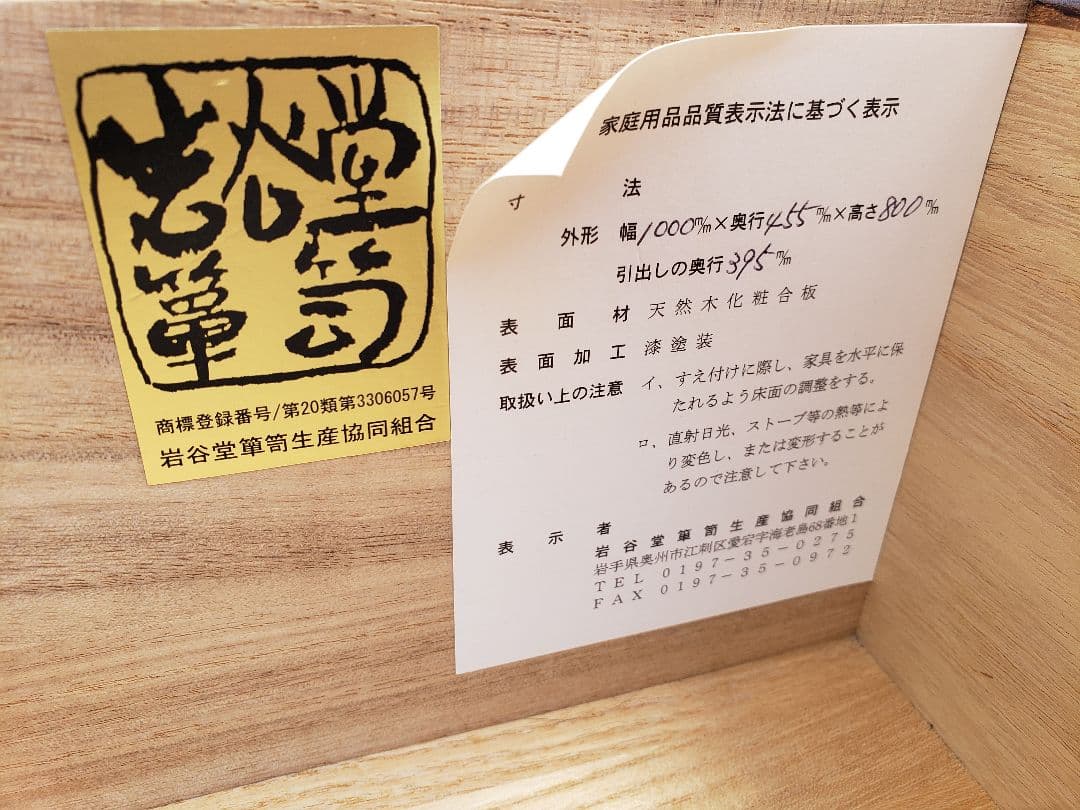 岩谷堂
箪笥
商標登録番号/第20類第3306057号
岩谷堂箪笥生産協同組合
家庭用品品質表示法に基づく表示
寸法
外形 幅1000m/m×奥行455m/m×高さ800m/m
引出しの奥行395m/m
表面材 天然木化粧合板
表面加工 漆塗装
取扱い上の注意 イ、すえ付けに際し、家具を水平に保
たれるよう床面の調整をする。
ロ、直射日光、ストーブ等の熱等によ
り変色し、または変形することが
あるので注意して下さい。
表示者
岩谷堂箪笥生産協同組合
岩手県奥州市江刺区愛宕字海老島68番地1
TEL 0197-35-0275
FAX 0197-35-0972